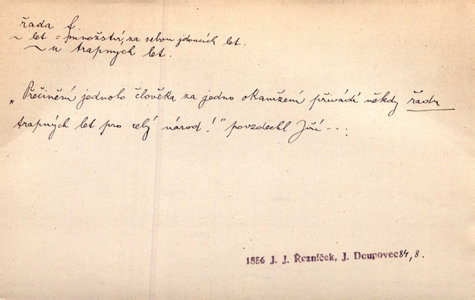 řada f.
~ let = množství za sebou jdoucích let.
~ u trapných let.
„Přečinění jednoho člověka za jedno okamžení přivádí někdy řadu
trapných let pro celý národ!" povzdechl Jiří ...
1856 J. J. Řezníček, J. Doupovec 84, 8.